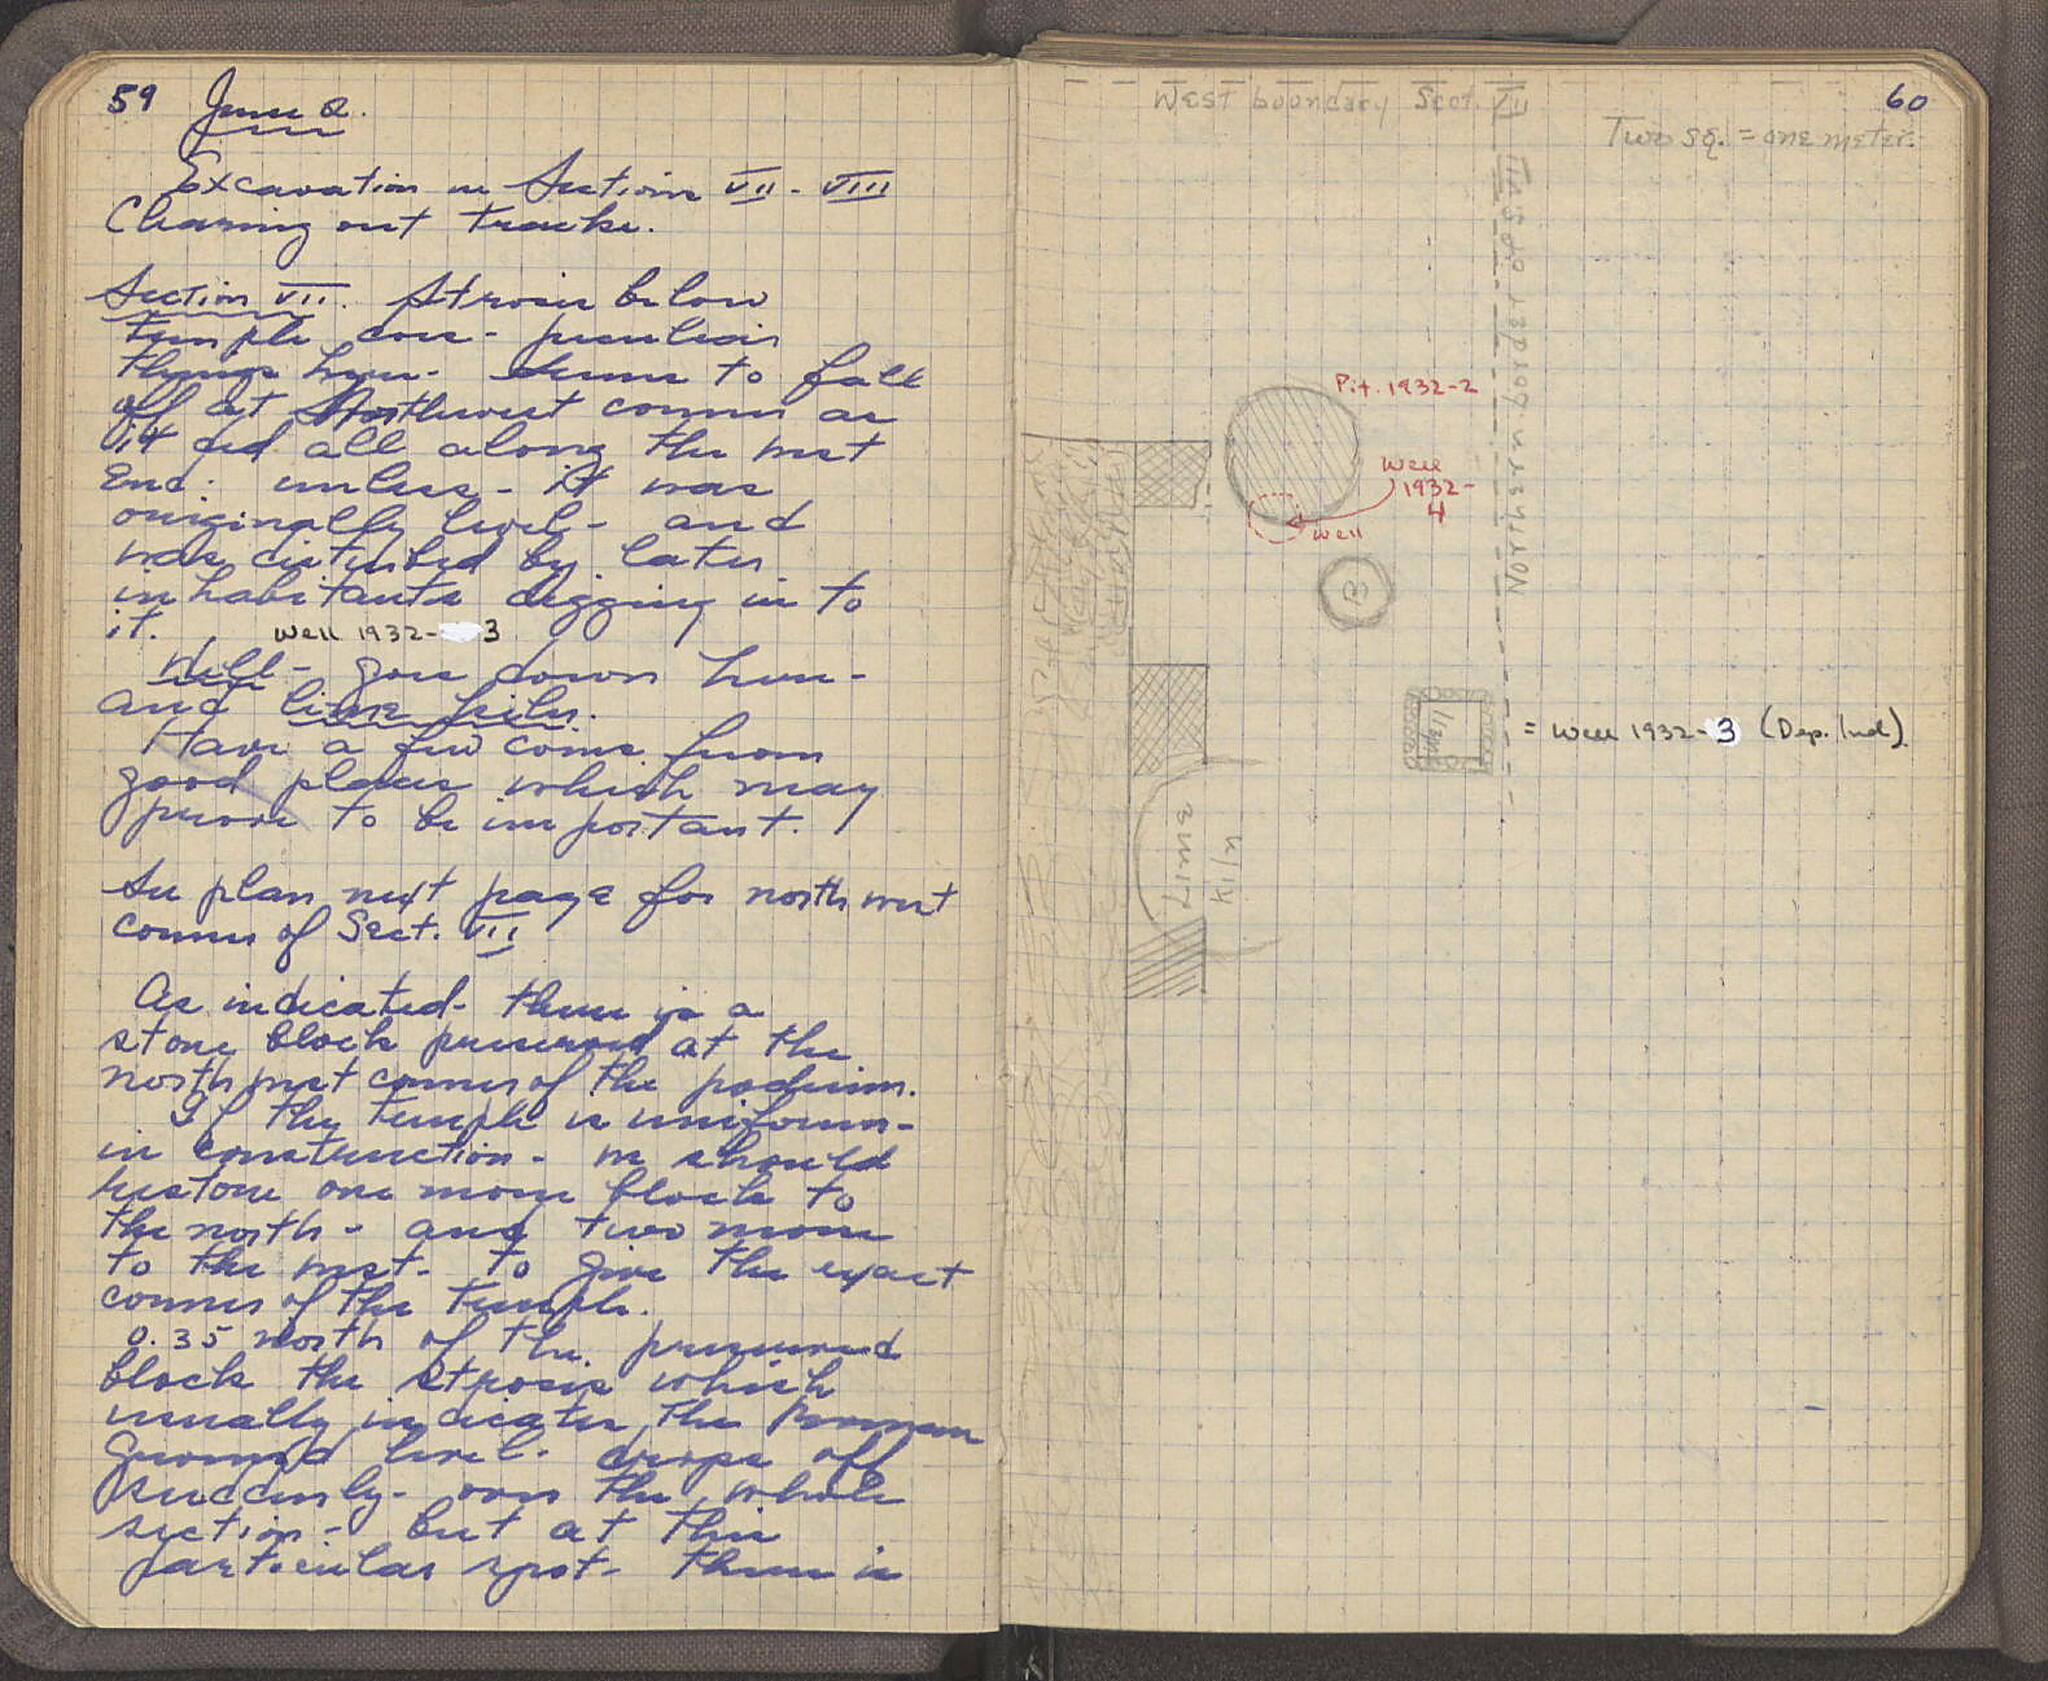 59 June 2.
Excavation in Sections VII - VIII
Clearing out trenches.
Section VII. Strosis below
temple core - peculiar
things here - seems to fall
off at Northwest corner as
it did all along the west
End. unless - it was
originally level - and
was disturbed by later
inhabitants digging in to
it.
Well 1932- 3
Well - goes down here -
and lime kiln.
Have a few coins from
good places which may
prove to be important.
See plan next page for north west
corner of Sect. VII
As indicated - there is a
stone block preserved at the
north west corner of the podium.
If the temple is uniform -
in construction - we should
restore one more block to
the north - and two more
to the west - to give the exact
corner of the temple.
0.35 North of the preserved
block the strosis which
usually indicates the Roman
Ground level - drops off
suddenly - over the whole
section - but at this
particular spot - there is
60
West boundary Sect. VII
Two sq. = one meter.
Northern border of Sect. VII
Pit. 1932-2
Well
1932-
4
well
B
Well
= Well 1932-3 (Dep. Ind).
Lime
Kiln